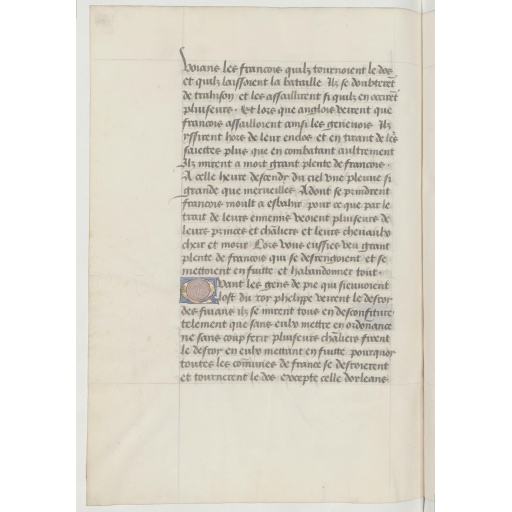 Voians les francois quilz tournoient le dos
et quilz laissoient la bataille Ilz se doubterẽt
de trahison et les assaillirent si quilz en occirẽt
pluiseurs. Et lors que anglois veirent que
francois assailloient ainsi les genevois Ilz
yssirent hors de leur enclos et en tirant de lẽs
saiettes plus que en combatant aultrement
Ilz mirent a mort grant plente de francois.
A celle heure descendy du ciel vne pleuue si
grande que merueilles Adont se prindrent
francois moult a esbahir pour ce que par le
trait de leurs ennemis veoient pluiseurs de
leurs princes et chl̃iers et leurs cheuaulx
cheir et morir Lors vous eussies veu grant
plente de francois qui se desrengoient et se
mettoient en fuitte et habandonner tout.
Quant les gens de pie qui sieuuoient
lost du roy phelippe veirent le desroy
des fuians ilz se mirent tous en desconfiture
telement que sans eulx mettre en ordonance
ne sans coup ferir pluiseurs chl̃iers firent
le desroy en eulx mettant en fuitte pourquoy
toutes les com̃unes de france se desroierent
et tournerent le dos excepte celle dorleans